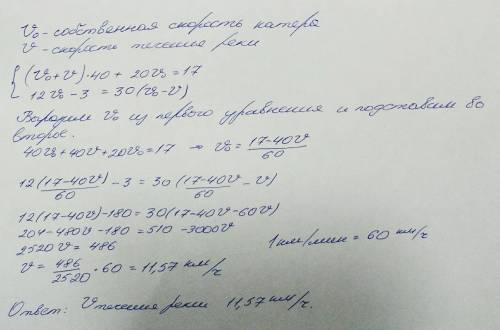 V₀ - собственная скорость катера
V - скорость течения реки
{ (V₀+V)·40 + 20V₀ = 17
12V₀ - 3 = 30(V₀-V)
Выразим V₀ из первого уравнения и подставим во
второе.
40V₀ + 40V + 20V₀ = 17 → V₀ = (17-40V)/60
12(17-40V)/60 - 3 = 30((17-40V)/60 - V)
12(17-40V) - 180 = 30(17-40V-60V)
204 - 480V - 180 = 510 - 3000V
2520V = 486
1 км/мин = 60 км/ч
V = 486/2520 · 60 = 11,57 км/ч
Ответ: V течения реки 11,57 км/ч.